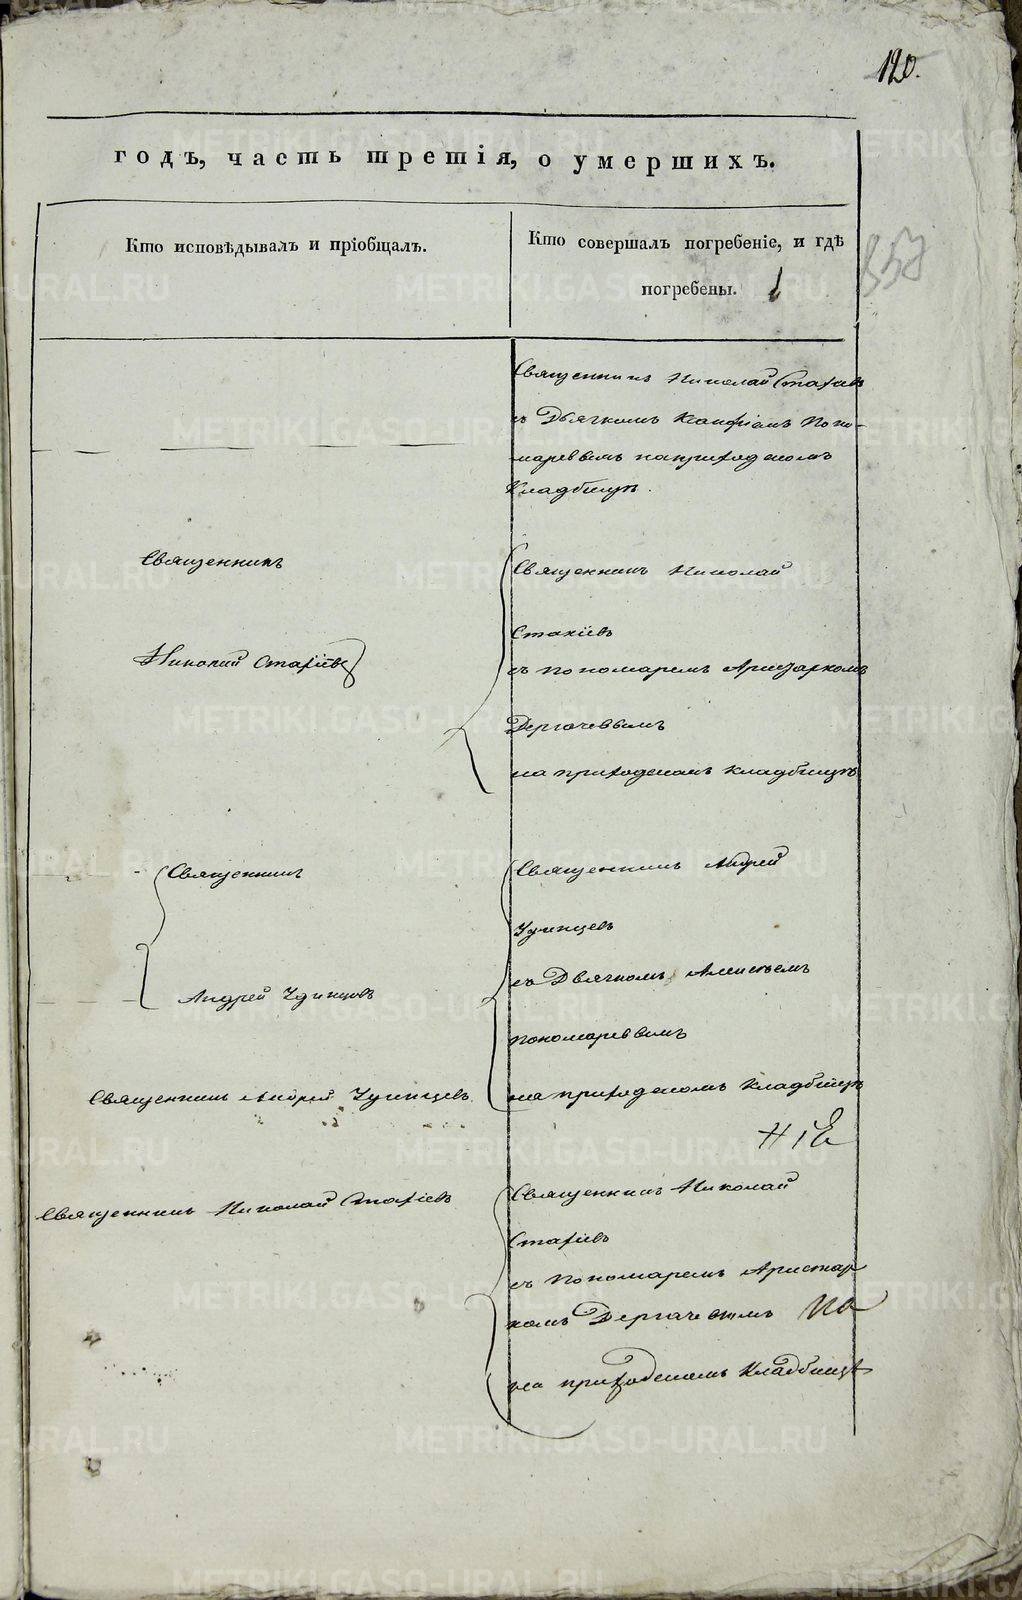 120.
годъ, часть третія, о умершихъ.
Кто исповѣдывалъ и пріобщалъ.
Кто совершалъ погребеніе, и гдѣ
погребены.
Священникъ Николай Стахіевъ
съ Дьячкомъ Поно-
маревымъ на приходскомъ
Кладбищѣ.
Священникъ
Николай Стахіевъ
Священникъ Николай
Стахіевъ
съ пономаремъ Аристархомъ
Дергачевымъ
на приходскомъ кладбищѣ
Священникъ
Андрей Удинцовъ
Священникъ Андрей
Удинцевъ
съ Дьячкомъ Алексѣемъ
Пономаревымъ
на приходскомъ кладбищѣ
Священникъ Андрей Удинцевъ
Священникъ Николай Стахіевъ
Священникъ Николай
Стахіевъ
съ пономаремъ Аристар
хомъ Дергачевымъ На
на приходскомъ Кладбищѣ
METRIKI.GASO-URAL.RU